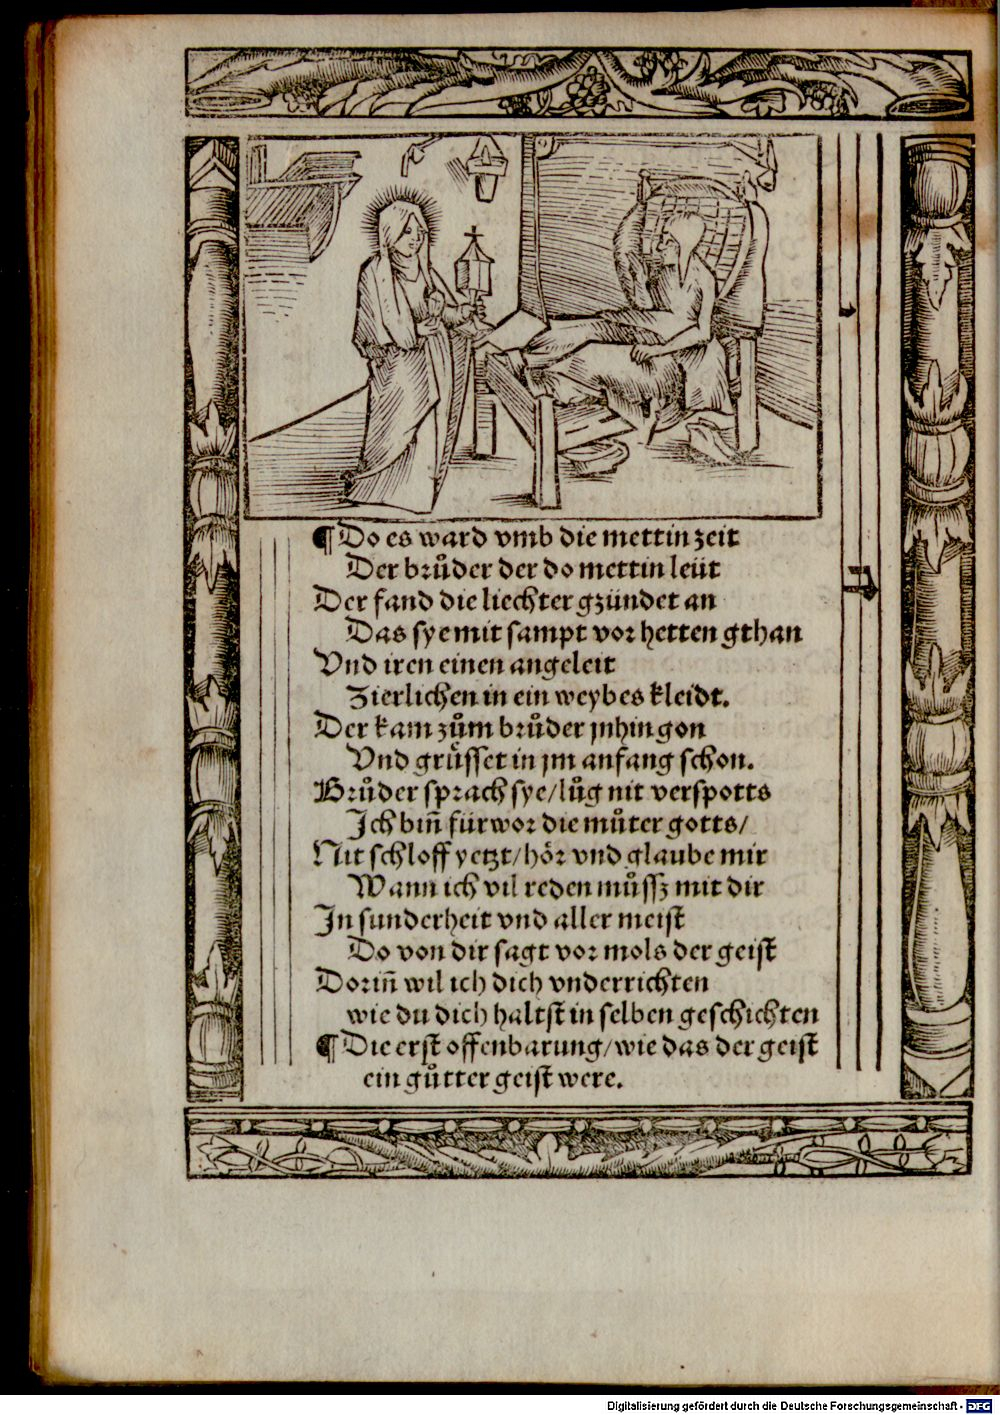 ¶ Do es ward vmb die mettin zeit
Der brůder der do mettin leüt
Der fand die liechter gzündet an
Das sye mit sampt vor hetten gthan
Vnd iren einen angeleit
Zierlichen in ein weybes kleidt.
Der kam zům brůder jnhin gon
Vnd grůsset in jm anfang schon.
Brůder sprach sye/ lůg nit verspotts
Ich biñ fürwor die můter gotts/
Nit schloff yetzt/ hör vnd glaube mir
Wann ich vil reden můssz mit dir
In sunderheit vnd aller meist
Do von dir sagt vor mols der geist
Doriñ wil ich dich vnderrichten
wie du dich haltst in selben geschichten
¶ Die erst offenbarung/ wie das der geist
ein gůtter geist were.
Digitalisierung gefördert durch die Deutsche Forschungsgemeinschaft - DFG